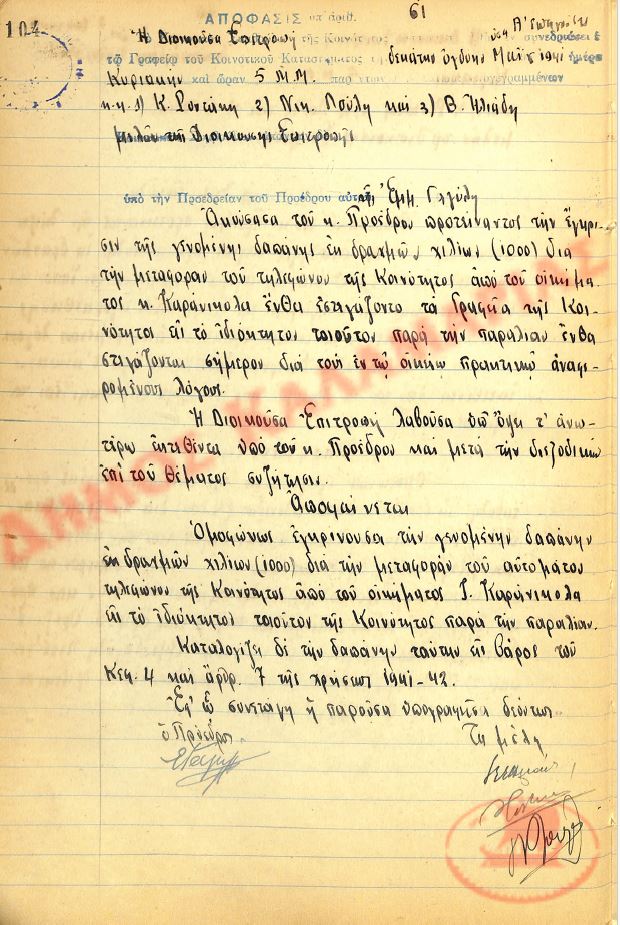 104
ΑΠΟΦΑΣΙΣ ὑπ' ἀριθ. 61
Ἡ Διοικοῦσα Ἐπιτροπή τῆς Κοινότητος συνεδριάσει
τῷ Γραφείῳ τοῦ Κοινοτικοῦ Καταστήματος δεκάτην ὀγδόην Μαΐου 1941 ἡμέρᾳ
Κυριακήν καὶ ὥραν 5 Μ.Μ. παρόντων
κ.κ. 1) Κ. 2) Νικ. καί 3) Β. Ἠλιάδη
μελῶν τῆς Διοικούσης Ἐπιτροπῆς
ὑπὸ τὴν Προεδρείαν τοῦ Προέδρου αὐτῆς Ἐμμ.
Ἀκούσασα τοῦ κ. Προέδρου προτείναντος τήν ἔγκρι
σιν τῆς γενομένης δαπάνης ἐκ δραχμῶν χιλίων (1000) διά
τήν μεταφοράν τοῦ τηλεφώνου τῆς Κοινότητος ἀπό τοῦ οἰκήμα
τος κ. Καράνικολα ἔνθα ἐστεγάζοντο τά Γραφεῖα τῆς Κοι-
νότητος εἰς τό ἰδιόκτητον τοιοῦτον παρά τήν παραλίαν ἔνθα
στεγάζονται σήμερον διά τούς ἐν τῷ οἰκείῳ πρακτικῷ ἀναφε-
ρομένους λόγους.
Ἡ Διοικοῦσα Ἐπιτροπή λαβοῦσα ὑπ' ὄψει τ' ἀνω-
τέρω ἐκτεθέντα ὑπό τοῦ κ. Προέδρου καί μετά τήν διεξοδικήν
ἐπί τοῦ θέματος συζήτησιν.
Ἀποφαίνεται
Ὁμοφώνως ἐγκρίνουσα τήν γενομένην δαπάνην
ἐκ δραχμῶν χιλίων (1000) διά τήν μεταφοράν τοῦ αὐτομάτου
τηλεφώνου τῆς Κοινότητος ἀπό τοῦ οἰκήματος Ι. Καράνικολα
εἰς τό ἰδιόκτητον τοιοῦτον τῆς Κοινότητος παρά τήν παραλίαν.
Καταλογίζει δέ τήν δαπάνην ταύτην εἰς βάρος τοῦ
Κεφ. 4 καί ἄρθρ. 7 τῆς χρήσεως 1941-42.
Ἐφ' ᾧ συνετάγη ἡ παροῦσα ὑπογραφεῖσα δεόντως
ὁ Πρόεδρος Τά μέλη
ΔΗΜΟΣ ΚΑΛΑΜΑΡΙΑΣ